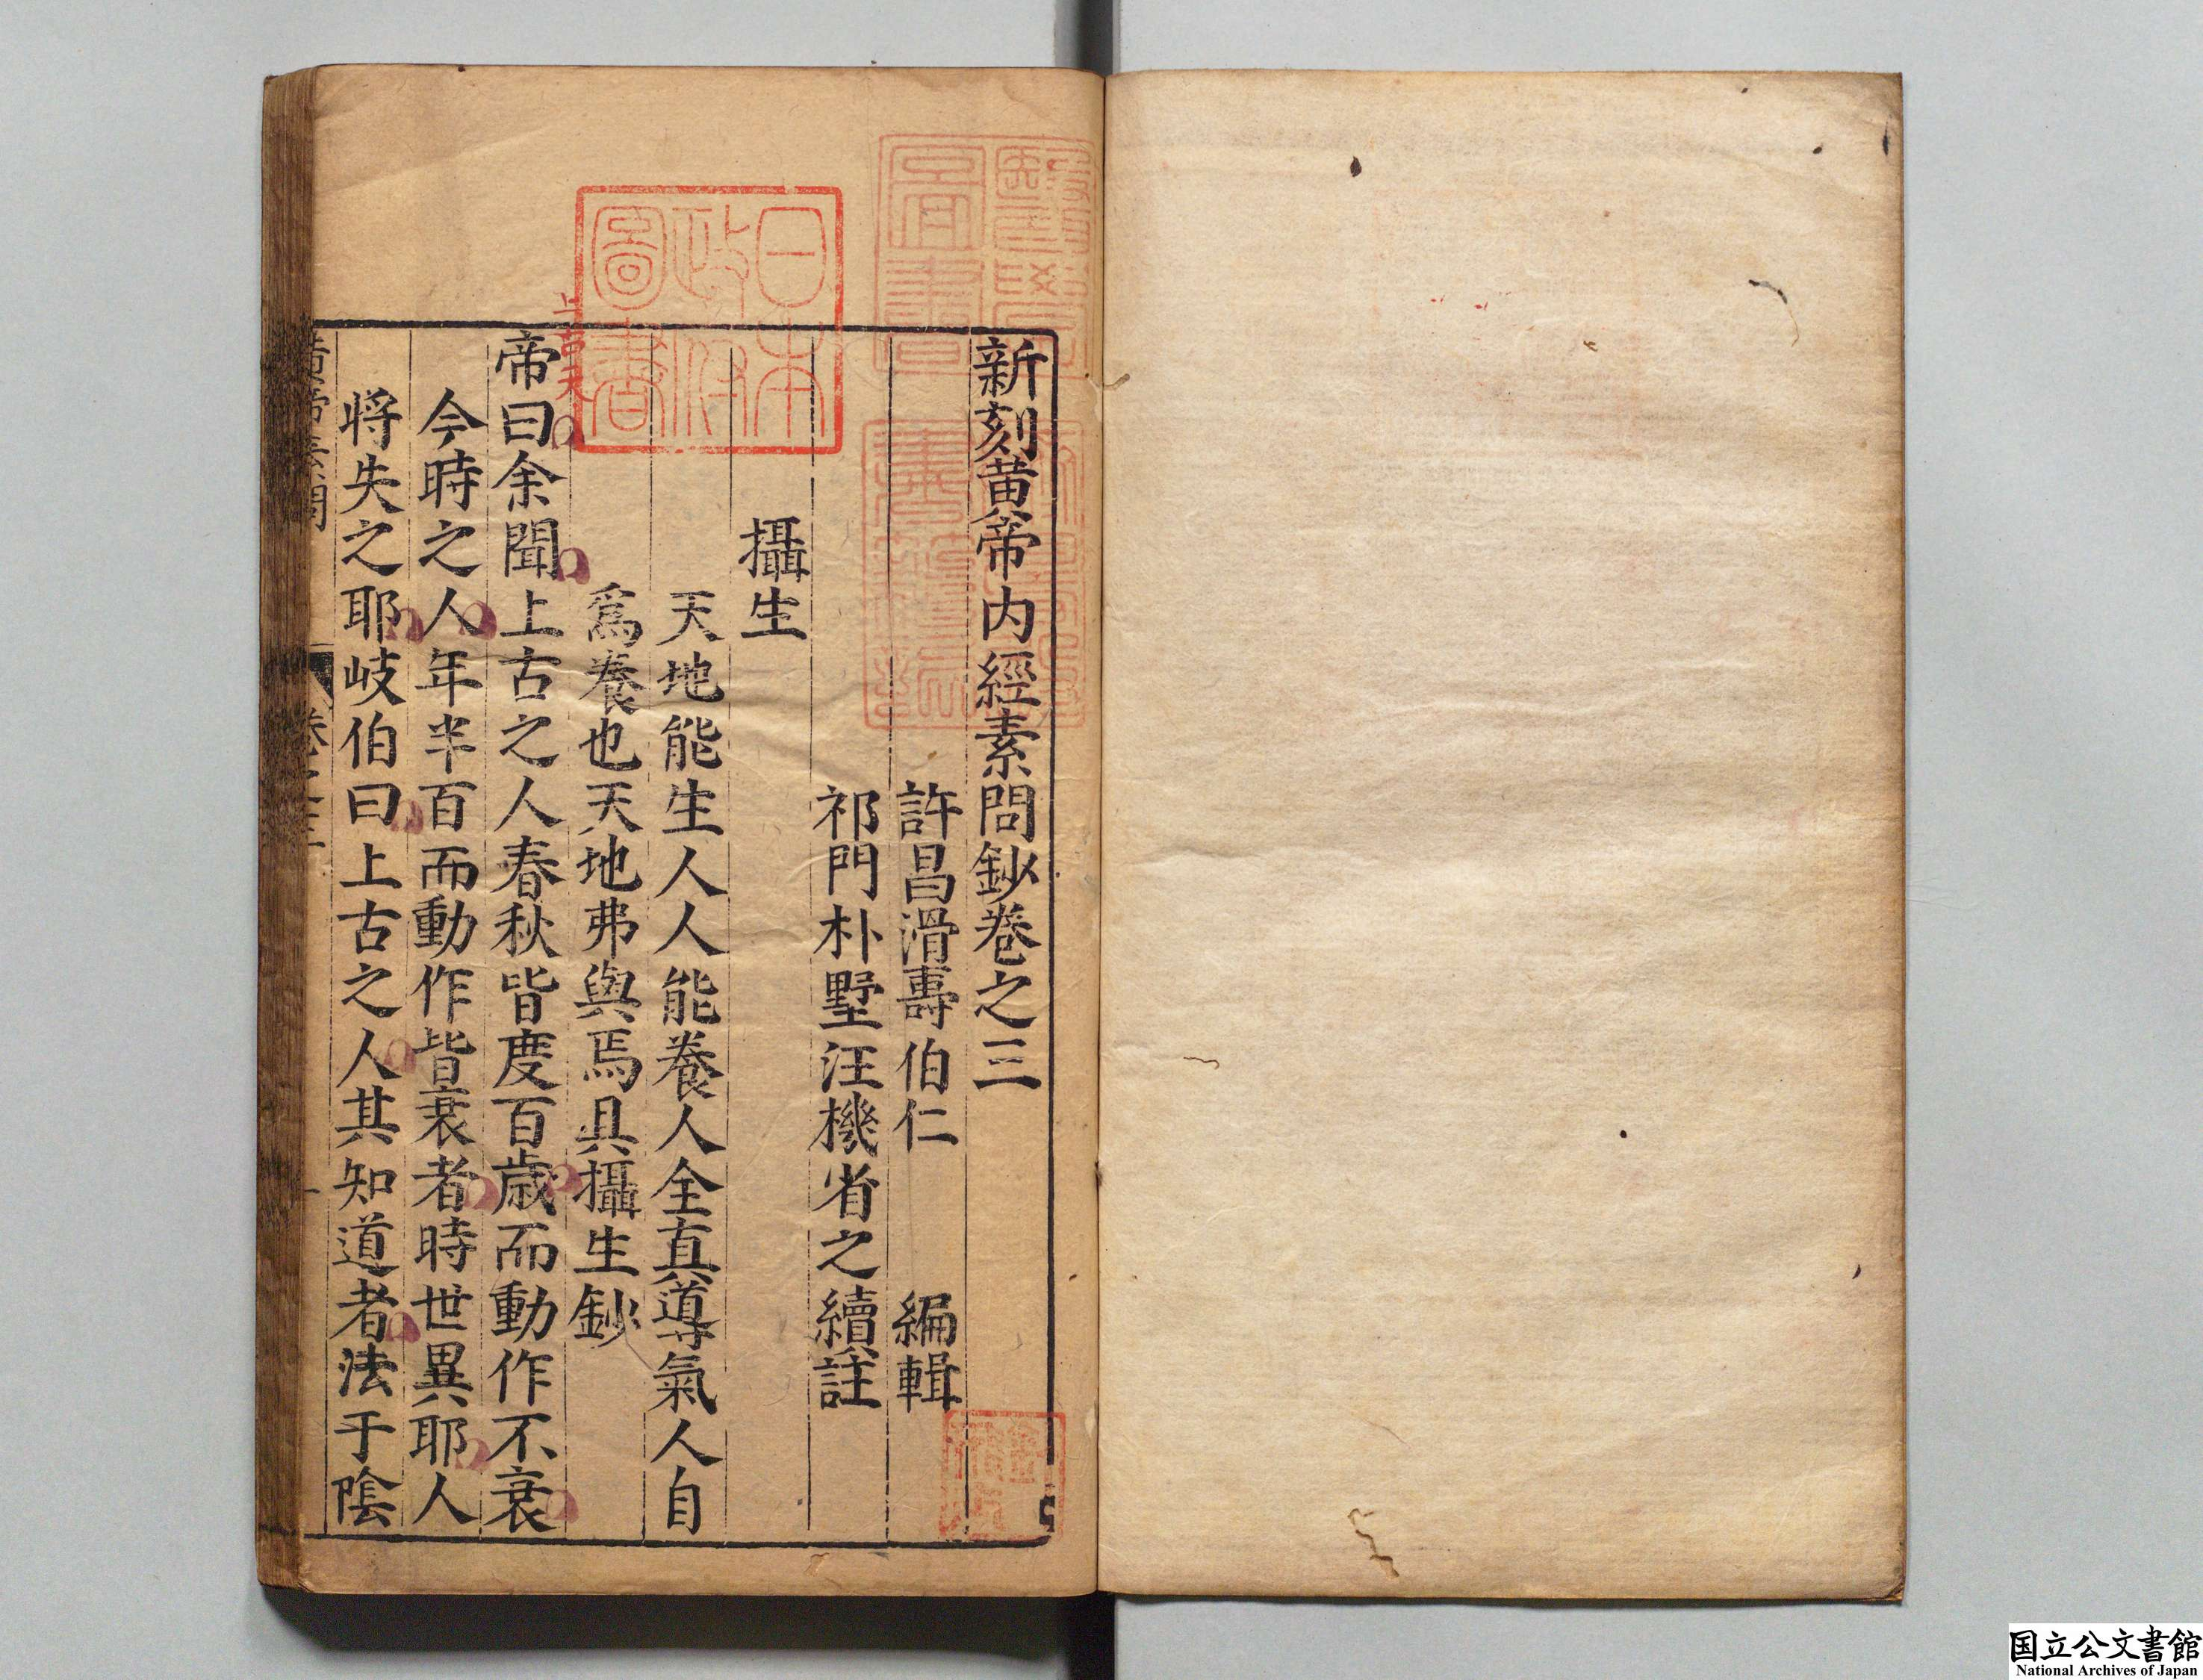 新刻黃帝内經素問鈔卷之三
許昌滑壽伯仁　編輯
祁門朴墅汪機省之續註
攝生
天地能生人人能養人全真導氣人自
爲養也天地弗與焉具攝生鈔
帝曰余聞上古之人春秋皆度百歲而動作不衰
今時之人年半百而動作皆衰者時世異耶人
將失之耶岐伯曰上古之人其知道者法于陰
黃帝素問
卷之三
一
上古天
日本
政府
圖書
醫學
圖書
国立公文書館
National Archives of Japan